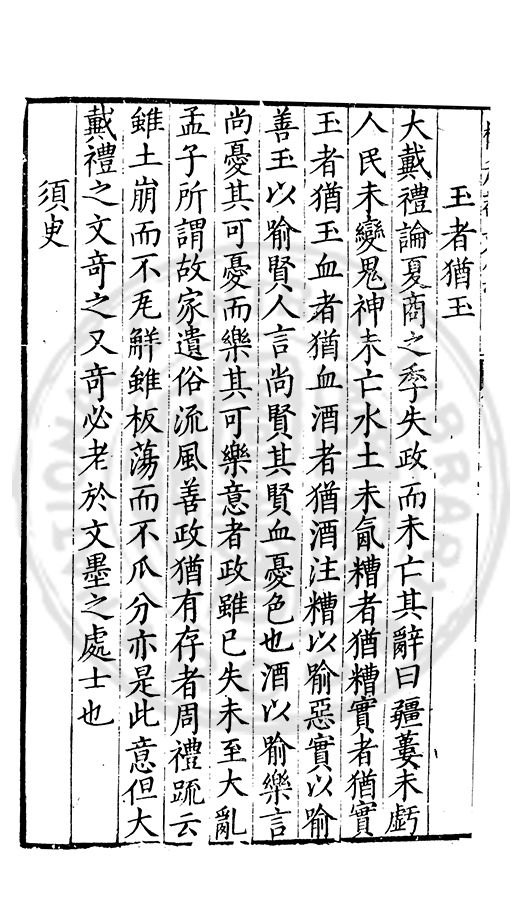 玉者猶玉
大戴禮論夏商之季失政而未亡其辭曰疆蔞未虧
人民未變鬼神未亡水土未氤糟者猶糟實者猶實
玉者猶玉血者猶血酒者猶酒注糟以喻惡實以喻
善玉以喻賢人言尚賢其賢血憂色也酒以喻樂言
尚憂其可憂而樂其可樂意者政雖已失未至大亂
孟子所謂故家遺俗流風善政猶有存者周禮疏云
雖土崩而不瓦觧雖板蕩而不瓜分亦是此意但大
戴禮之文奇之又奇必老於文墨之處士也
須史